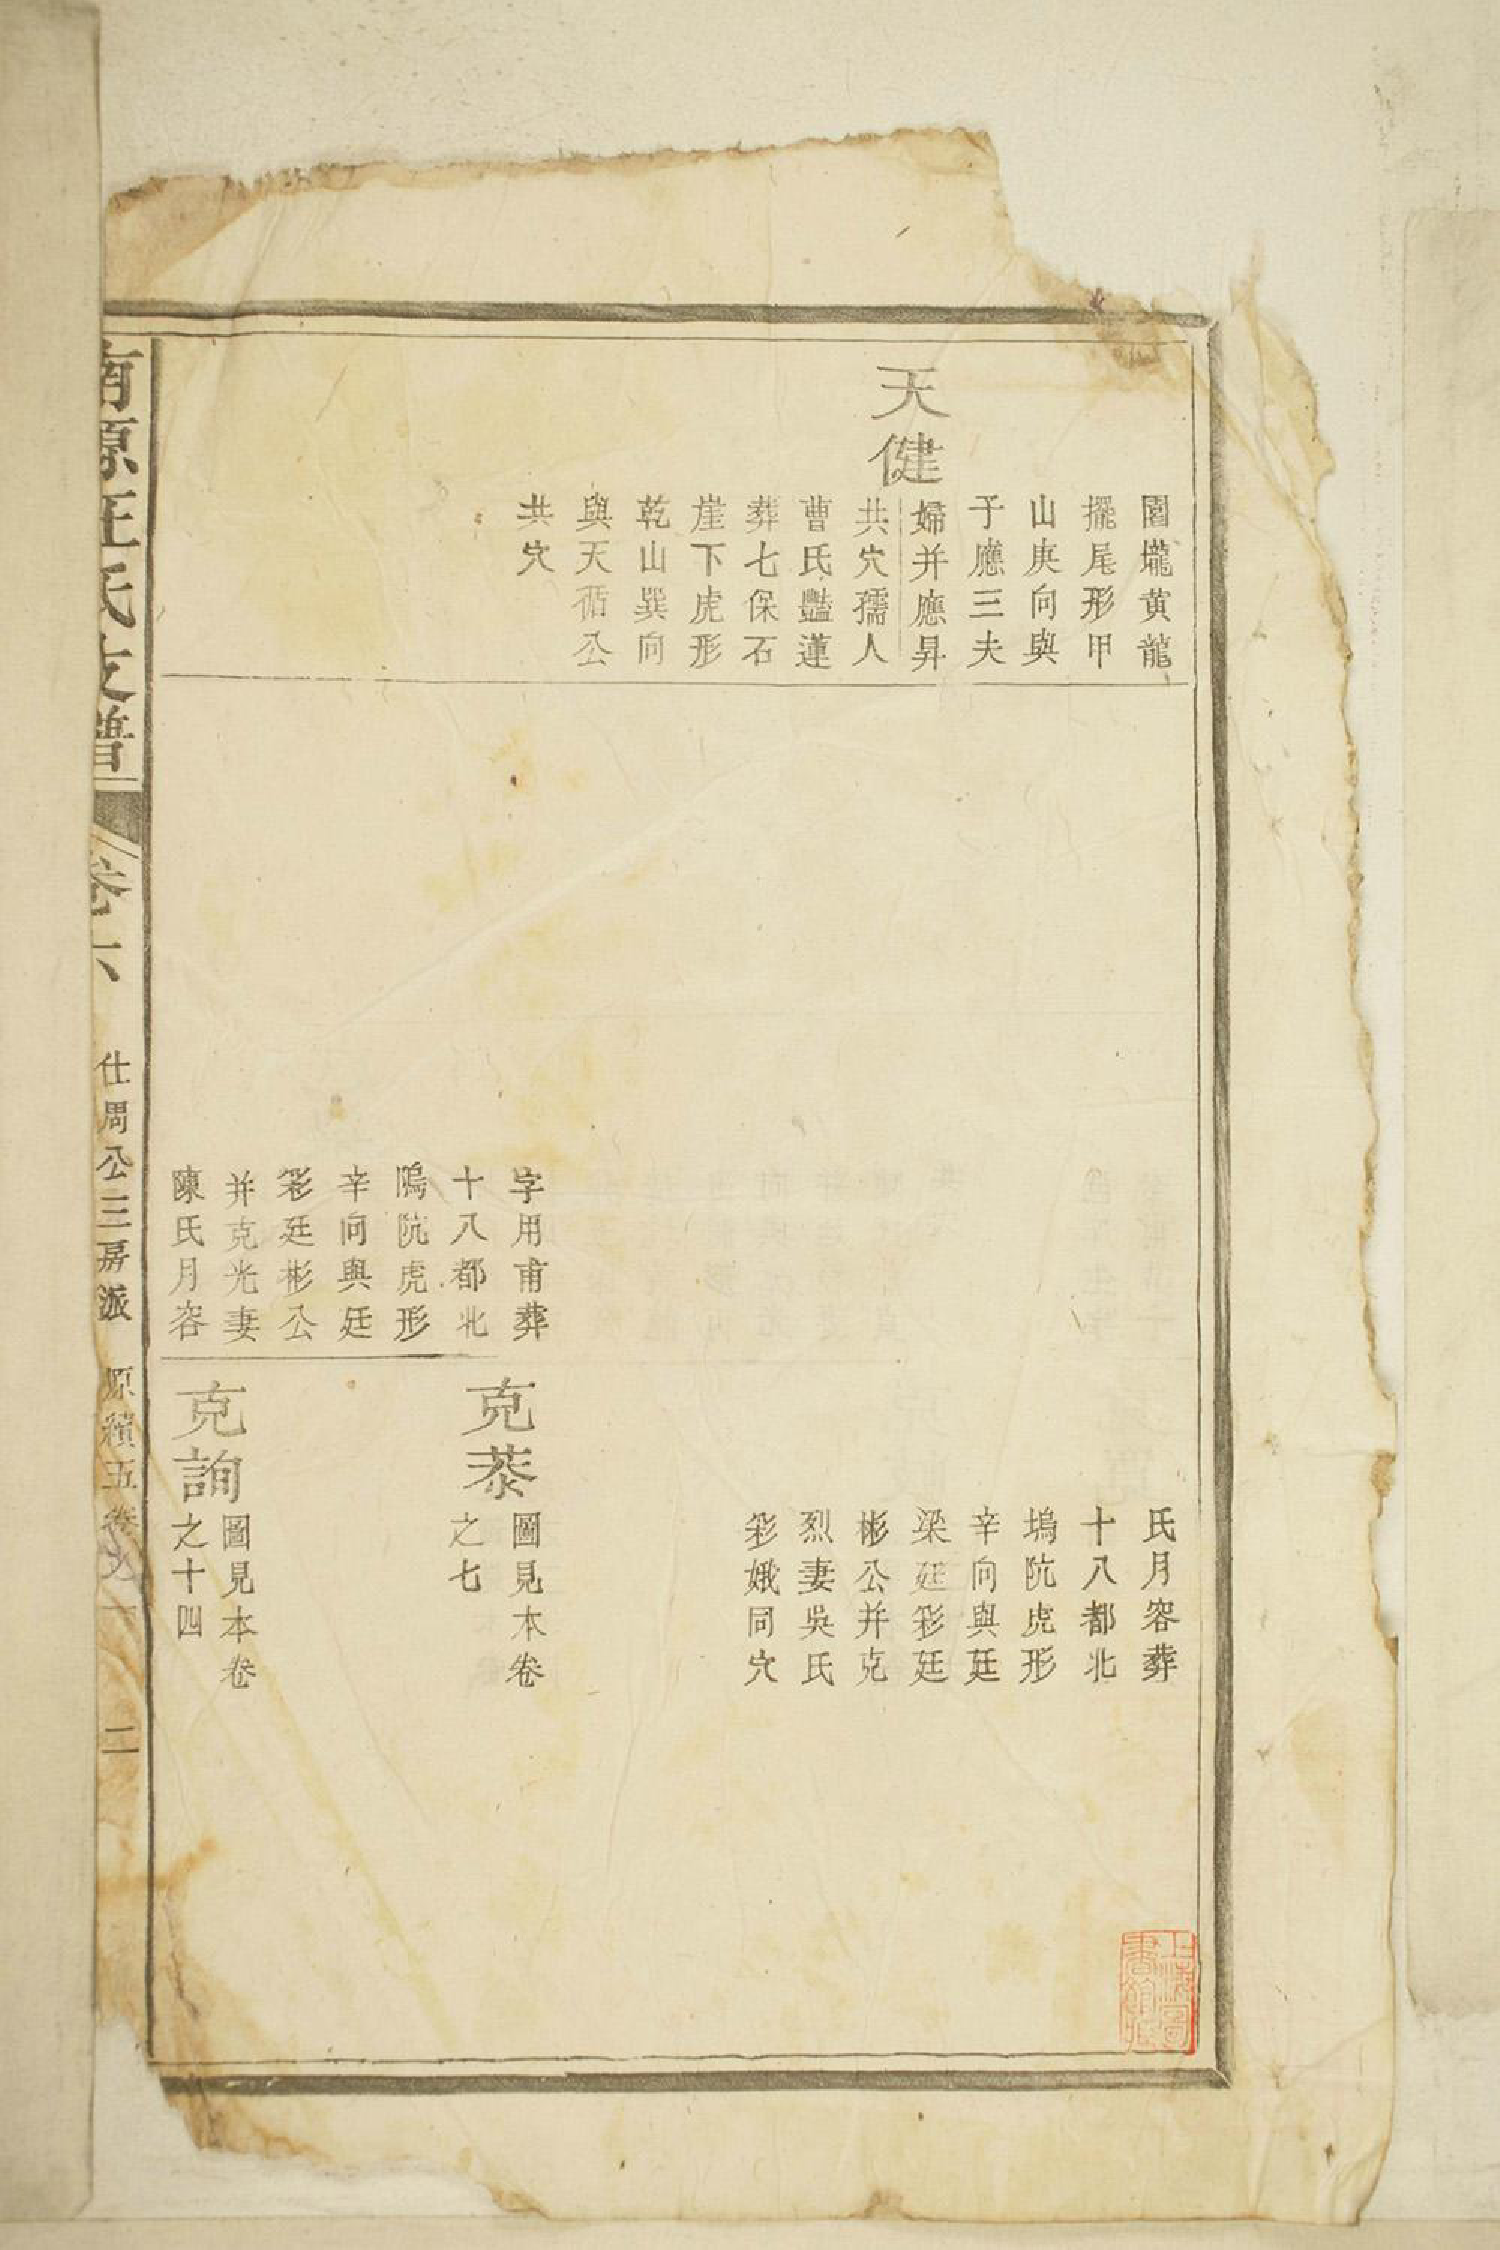 園壠黄龍
擺尾形甲
山庚向與
子應三夫
婦并應昇
天健
共穴孺人
曹氏豔蓮
葬七保石
崖下虎形
乾山巽向
與天循公
共穴
字用甫葬
十八都北
隖阬虎形
辛向與廷
彩廷彬公
并克光妻
陳氏月容
氏月容葬
十八都北
塢阬虎形
辛向與廷
梁廷彩廷
彬公并克
烈妻吳氏
彩娥同穴
克菾
圖見本卷
之七
克詢
圖見本卷
之十四
南源汪氏支譜
卷六
仕周公三房派
原積五卷之一
二
上海圖
書館藏